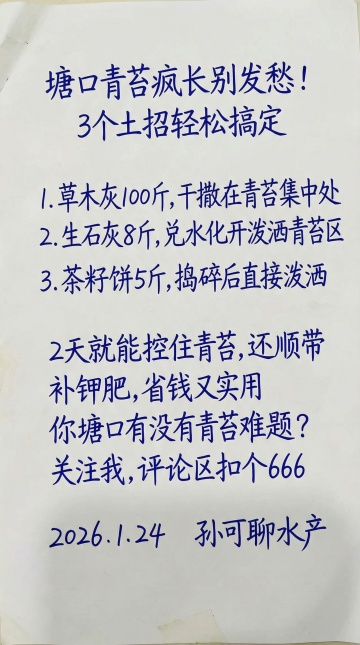 塘口青苔疯长别发愁！
3个土招轻松搞定
1.草木灰100斤,干撒在青苔集中处
2.生石灰8斤,兑水化开泼洒青苔区
3.茶籽饼5斤,捣碎后直接泼洒
2天就能控住青苔,还顺带
补钾肥,省钱又实用
你塘口有没有青苔难题？
关注我,评论区扣个666
2026.1.24 孙可聊水产